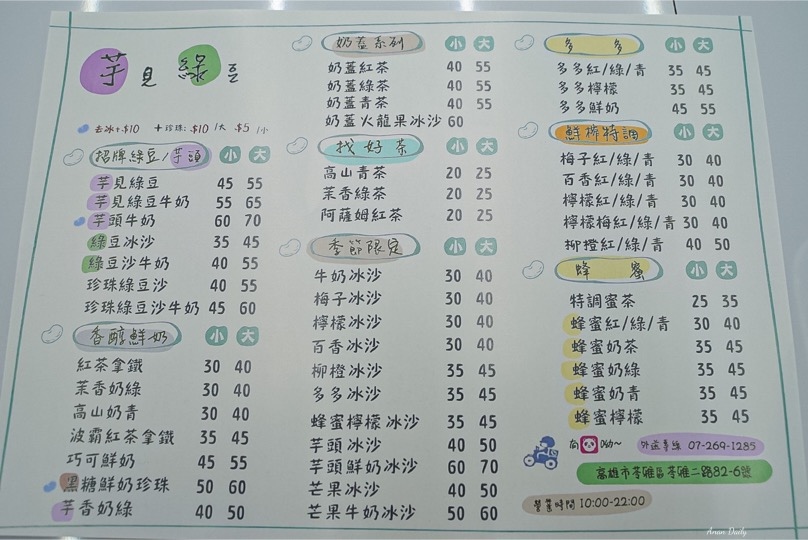 芋見綠豆
去冰+$10 +珍珠: $10/大 $5/小
招牌綠豆/芋頭 小 大
芋見綠豆 45 55
芋見綠豆牛奶 55 65
芋頭牛奶 60 70
綠豆冰沙 35 45
綠豆沙牛奶 40 55
珍珠綠豆沙 40 55
珍珠綠豆沙牛奶 45 60
香醇鮮奶 小 大
紅茶拿鐵 30 40
茉香奶綠 30 40
高山奶青 30 40
波霸紅茶拿鐵 35 45
巧可鮮奶 45 55
黑糖鮮奶珍珠 50 60
芋香奶綠 40 50
奶蓋系列 小 大
奶蓋紅茶 40 55
奶蓋綠茶 40 55
奶蓋青茶 40 55
奶蓋火龍果冰沙 60
找好茶 小 大
高山青茶 20 25
茉香綠茶 20 25
阿薩姆紅茶 20 25
季節限定 小 大
牛奶冰沙 30 40
梅子冰沙 30 40
檸檬冰沙 30 40
百香冰沙 30 40
柳橙冰沙 35 45
多多冰沙 35 45
蜂蜜檸檬冰沙 35 45
芋頭冰沙 40 50
芋頭鮮奶冰沙 60 70
芒果冰沙 40 50
芒果牛奶冰沙 50 60
多多 小 大
多多紅/綠/青 35 45
多多檸檬 35 45
多多鮮奶 45 55
鮮榨特調 小 大
梅子紅/綠/青 30 40
百香紅/綠/青 30 40
檸檬紅/綠/青 30 40
檸檬梅紅/綠/青 30 40
柳橙紅/綠/青 40 50
蜂蜜 小 大
特調蜜茶 25 35
蜂蜜紅/綠/青 30 40
蜂蜜奶茶 35 45
蜂蜜奶綠 35 45
蜂蜜奶青 35 45
蜂蜜檸檬 35 45
有 呦~ 外送專線 07-269-1285
高雄市苓雅區苓雅二路82-6號
營業時間 10:00-22:00
Anan Daily